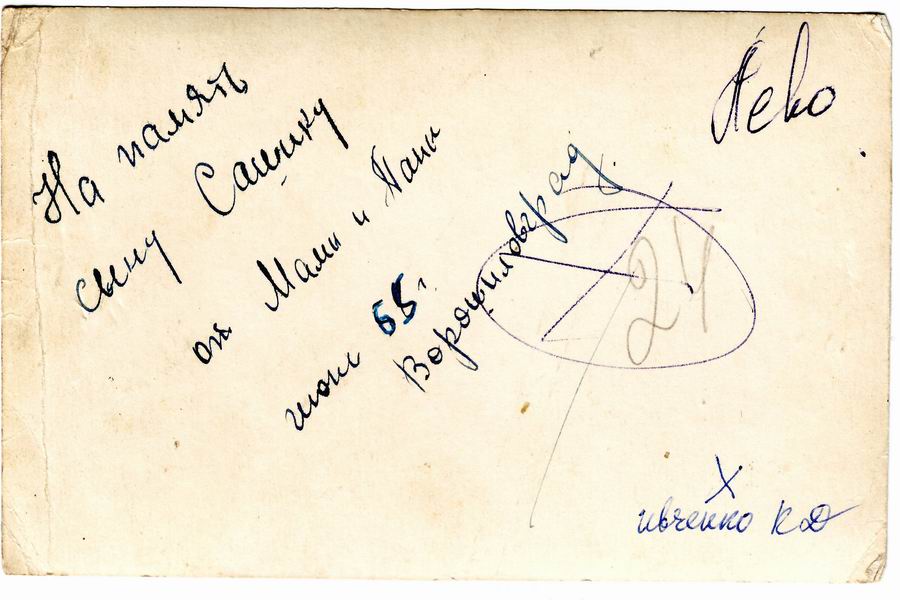 На память
сыну Сашику
от Мамы и Папы
июнь 65 г.
Ворошиловград.
24
Ивченко К Д